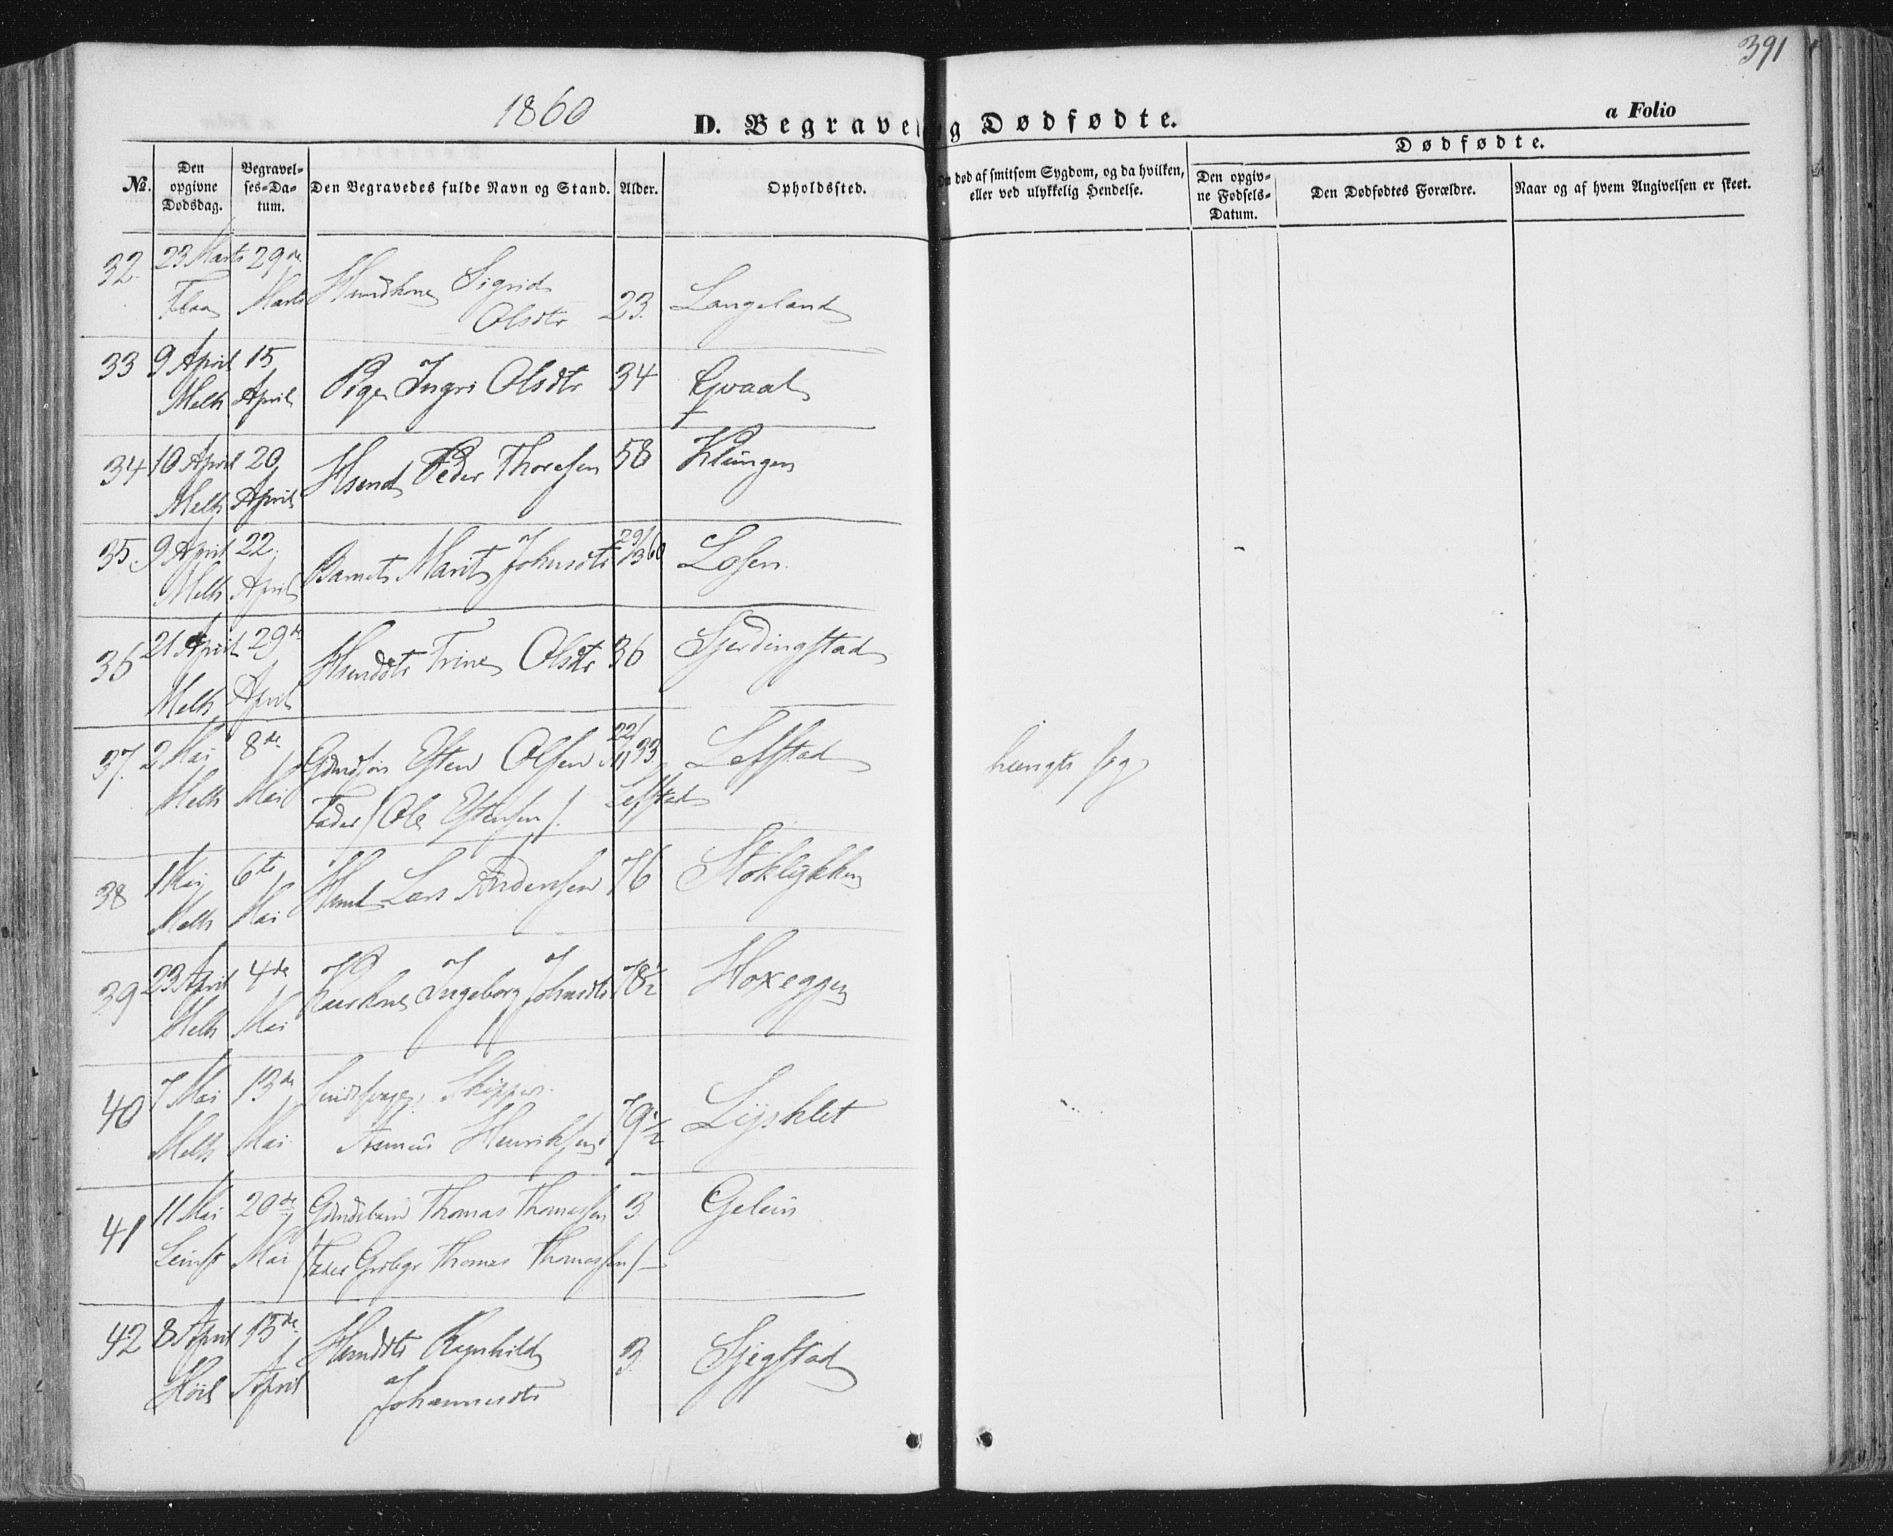 391
1860
D. Begravel
g Dødfødte.
a Folio
No.
Den opgivne Dødsdag.
Begravelses-Datum.
Den Begravedes fulde Navn og Stand.
Alder.
Opholdssted.
død af smitsom Sygdom, og da hvilken, eller ved ulykkelig Hendelse.
Dødfødte.
Den opgivne Fødsels-Datum.
Den Dødfødtes Forældre.
Naar og af hvem Angivelsen er skeet.
32 23 Marts 29de Sigrid
Flaa Marts Olsdtr 23 Langeland
33 9 April 15 Pige Ingri Olsdtr 34 Gvaal
Melh April
34 10 April 20 Peder Thoresen 58 Klungen
Melh April
35. 9 April 22 Barnet Marit Johnsdtr 29/3 60 Losen
Melh April
36 21 April 29de Trine Olsdtr 36
Melh April
37. 2 Mai 8de Esten Olsen 33 Lefstad hængte sig
Melh Mai Fader (Ole Estensen). Lefstad
38 1 Mai 6te Lars Andersen 76 Stoklykken
Melh Mai
39 23 April 4de Ingeborg Johnsdtr 78½ Hoxeggen
Melh Mai
40 7 Mai 13de Skipper
Melh Mai Henriksen 79½ Lysklet
41 11 Mai 20de Thomas Thomassen 3 Gelein
Leinst Mai (Fader Thomas Thomassen)
42 8 April 15de Ragnhild 3
Høil April Johannesdtr